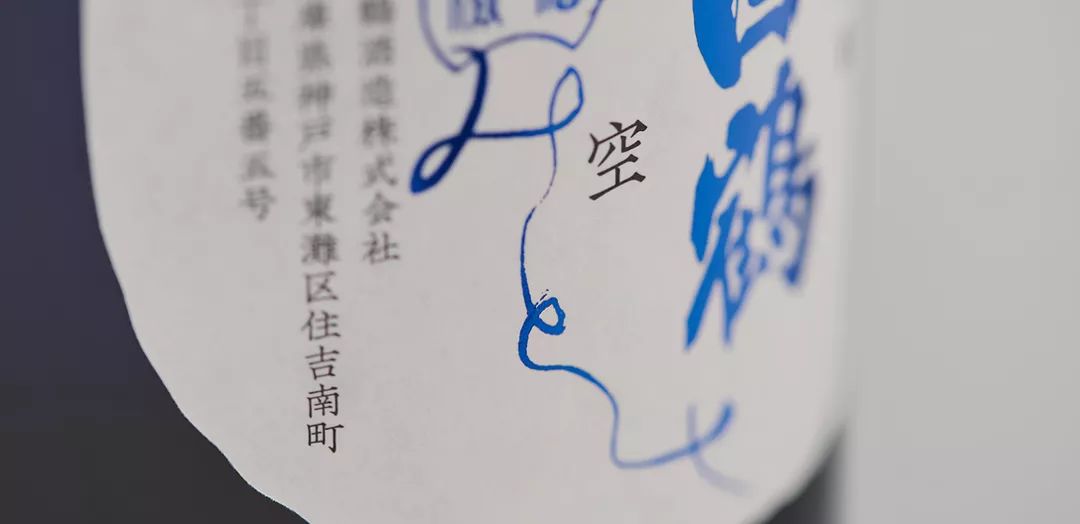 白鶴
空
鶴酒造株式会社
庫県神戸市東灘区住吉南町
丁目五番五号